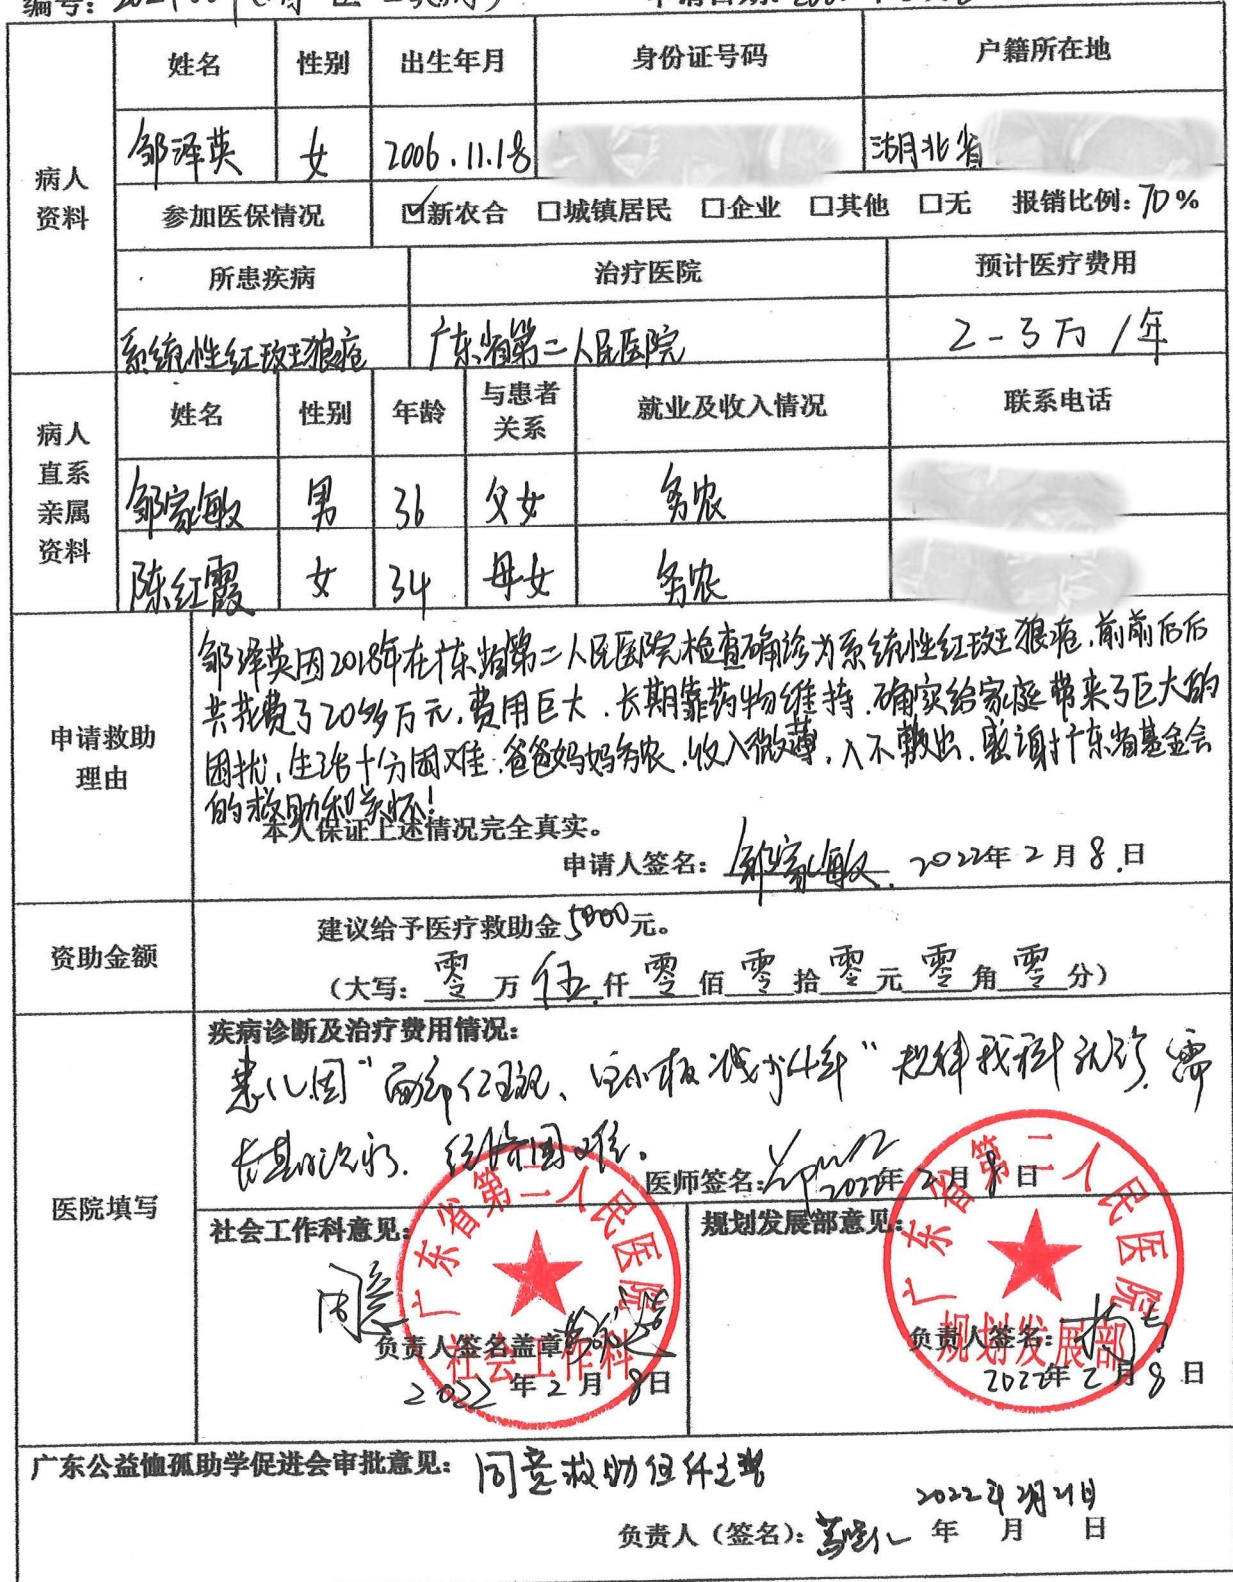 编号：
姓名 性别 出生年月 身份证号码 户籍所在地
病人资料
邹泽英 女 2006.11.18 湖北省
参加医保情况 ☑新农合 □城镇居民 □企业 □其他 □无 报销比例：70%
所患疾病 治疗医院 预计医疗费用
系统性红斑狼疮 广东省第二人民医院 2-3万/年
病人直系亲属资料
姓名 性别 年龄 与患者关系 就业及收入情况 联系电话
邹家敏 男 36 父女 务农
陈红霞 女 34 母女 务农
申请救助理由
邹泽英因2018年在广东省第二人民医院检查确诊为系统性红斑狼疮,前前后后
共花费了20多万元,费用巨大,长期靠药物维持,确实给家庭带来了巨大的
困扰,生活十分困难,爸爸妈妈务农,收入微薄,入不敷出,感谢广东省基金会
的救助和关怀!
本人保证上述情况完全真实。
申请人签名：邹家敏 2022年2月8日
资助金额
建议给予医疗救助金5000元。
（大写：零万伍仟零佰零拾零元零角零分）
医院填写
疾病诊断及治疗费用情况：
患儿因"面部红斑、血小板减少4年"规律我科就诊,需
长期治疗,经济困难。
医师签名： 2022年2月8日
社会工作科意见：
同意
负责人签名盖章
2022年2月8日
广东省第二人民医院
社会工作科
规划发展部意见：
负责人签名：
2022年2月8日
广东省第二人民医院
规划发展部
广东公益恤孤助学促进会审批意见：同意救助伍仟元整
2022年2月21日
负责人（签名）： 年 月 日